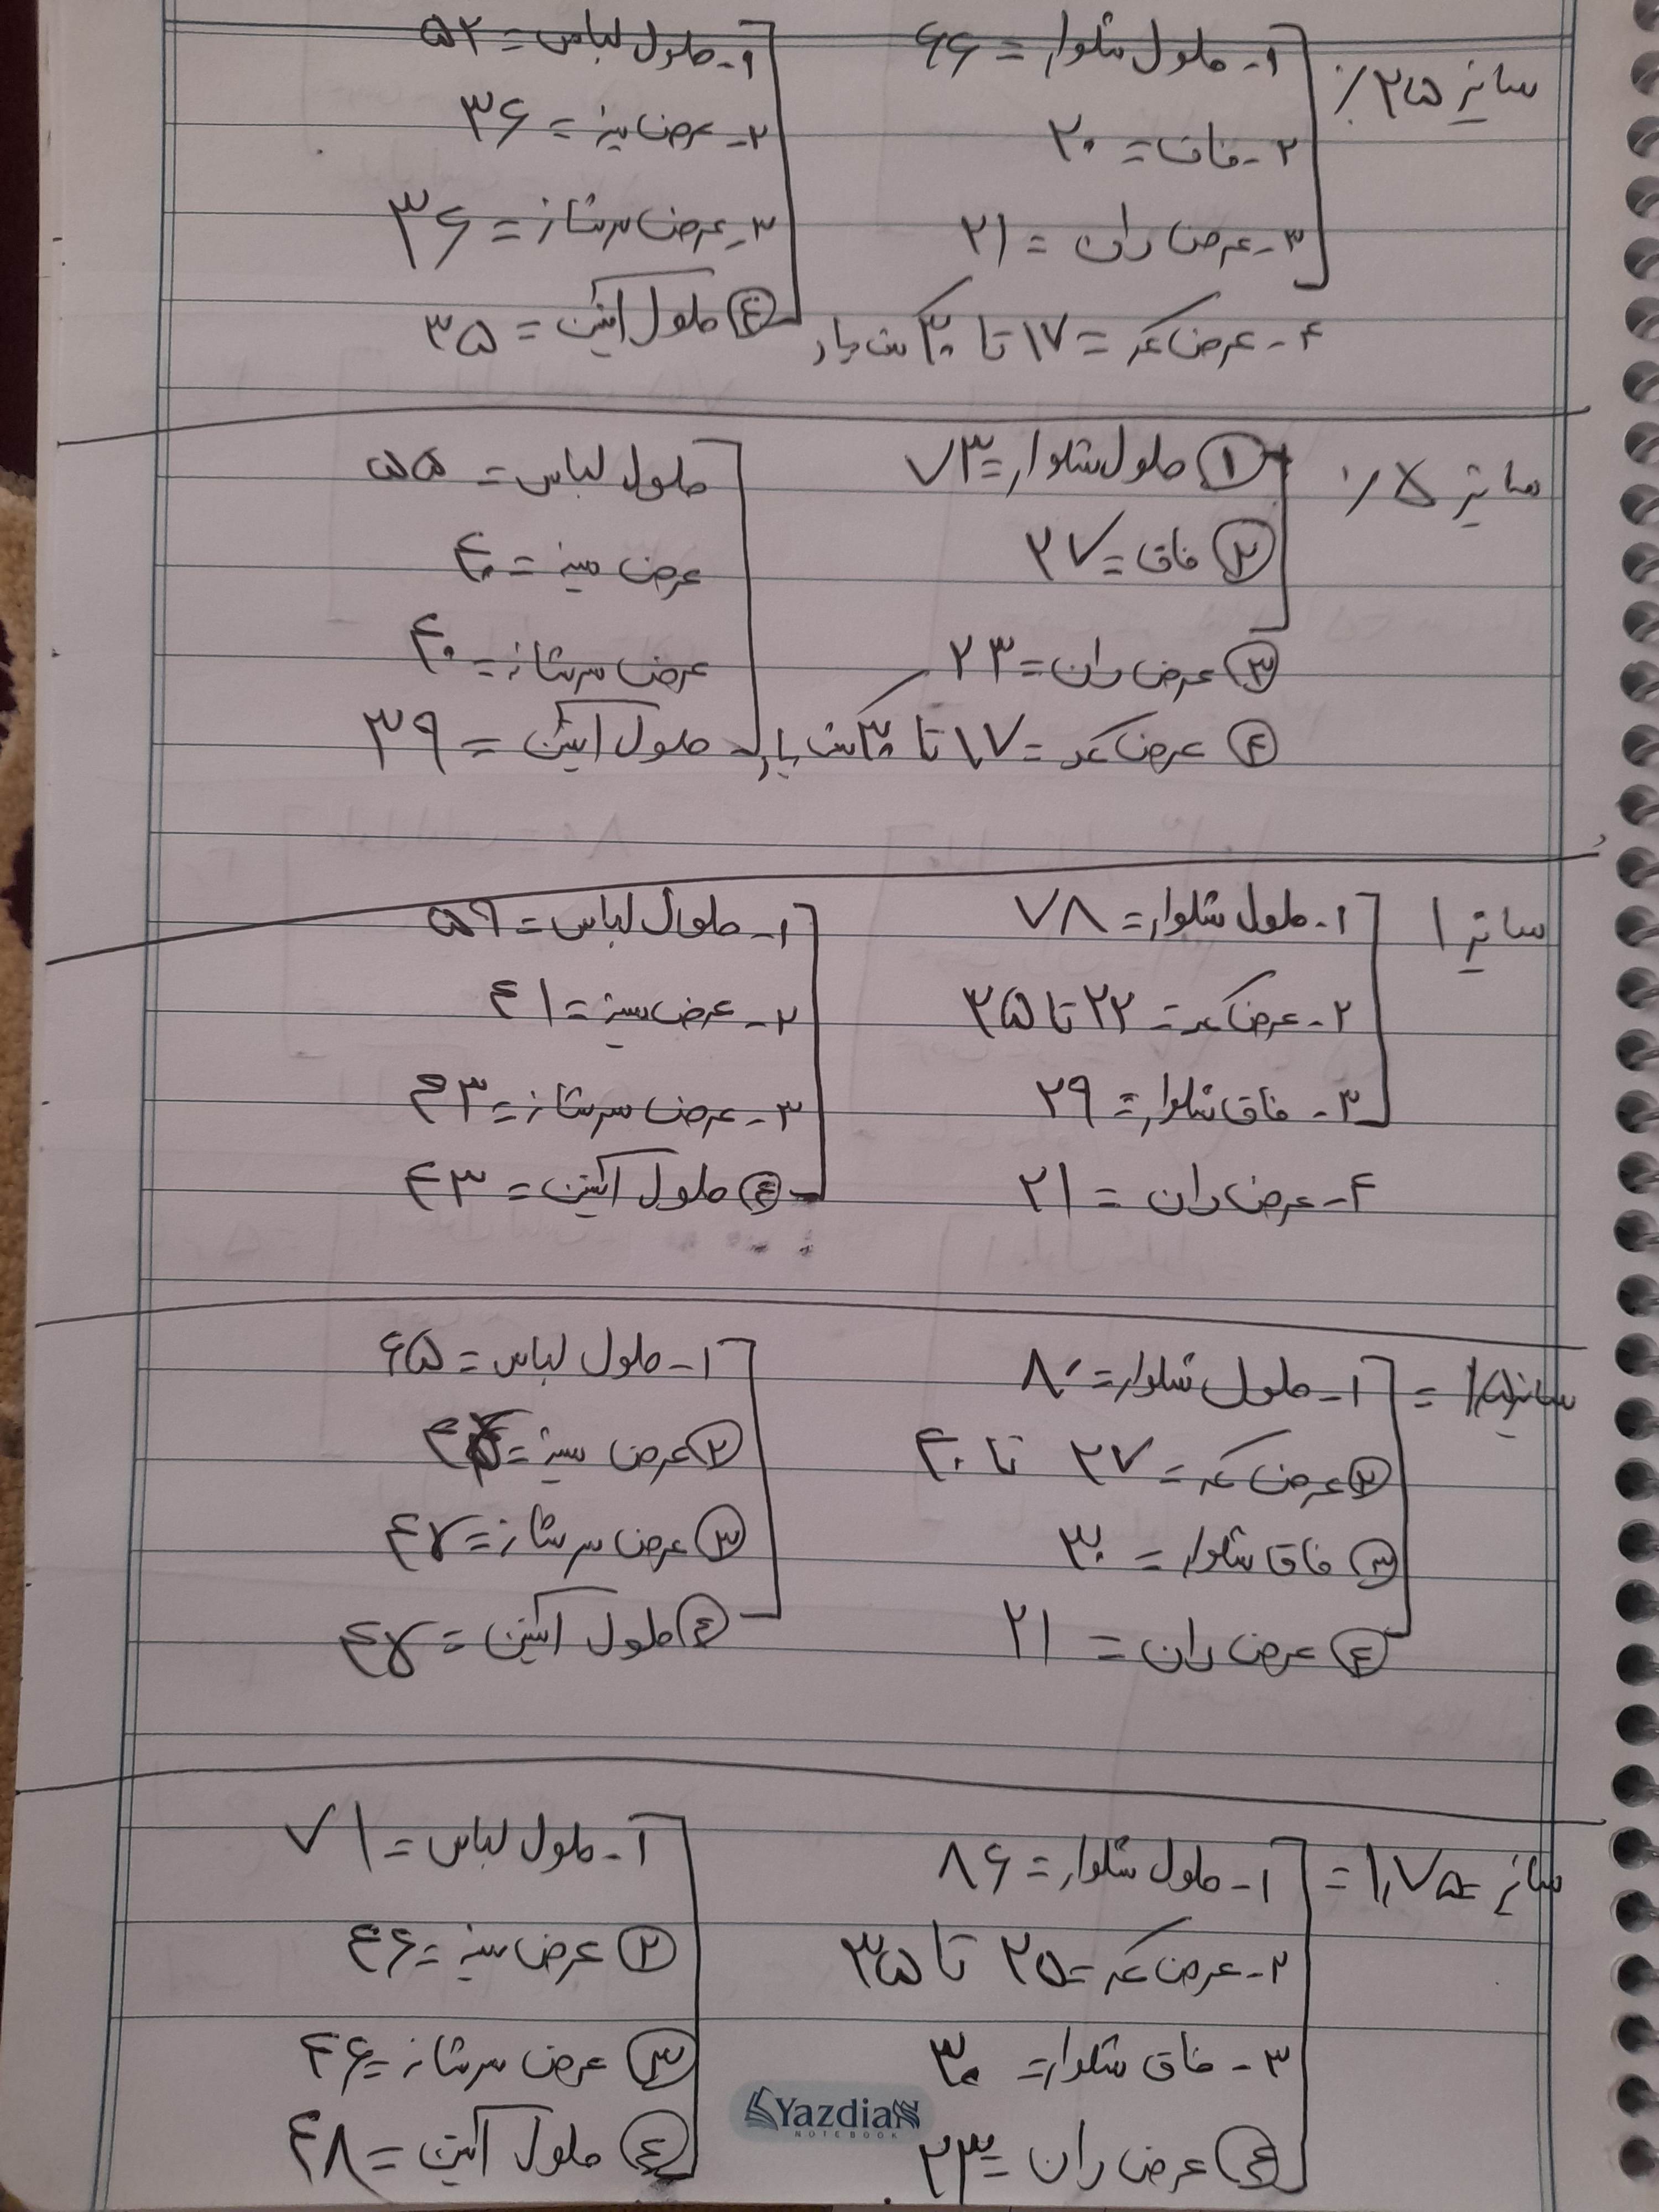 سایز ۲۵٪
۱- طول شلوار = ۶۶
۲- فاق = ۲۰
۳- عرض ران = ۲۱
۴- عرض کمر = ۱۷ تا ۳۰ کش باز
۱- طول لباس = ۵۲
۲- عرض سینه = ۳۶
۳- عرض سرشانه = ۳۶
۴ طول آستین = ۳۵
سایز ۵٪
۱ طول شلوار = ۷۳
۲ فاق = ۲۷
۳ عرض ران = ۲۳
۴ عرض کمر = ۱۷ تا ۳۰ کش باز
طول لباس = ۵۵
عرض سینه = ۴۰
عرض سرشانه = ۴۰
طول آستین = ۳۹
سایز ۱
۱- طول شلوار = ۷۸
۲- عرض کمر = ۲۲ تا ۳۵
۳- فاق شلوار = ۲۹
۴- عرض ران = ۲۱
۱- طول لباس = ۵۹
۲- عرض سینه = ۴۱
۳- عرض سرشانه = ۴۳
۴ طول آستین = ۴۳
سایز ۱,۵ =
۱- طول شلوار = ۸۰
۲ عرض کمر = ۲۷ تا ۴۰
۳ فاق شلوار = ۳۰
۴ عرض ران = ۲۱
۱- طول لباس = ۶۵
۲ عرض سینه =
۳ عرض سرشانه =
۴ طول آستین = ۴۵
سایز = ۱,۷۵ =
۱- طول شلوار = ۸۶
۲- عرض کمر = ۲۵ تا ۳۵
۳- فاق شلوار = ۳۰
۴ عرض ران = ۲۳
۱- طول لباس = ۷۱
۲ عرض سینه = ۴۶
۳ عرض سرشانه = ۴۶
۴ طول آستین = ۴۸
Yazdian
NOTEBOOK